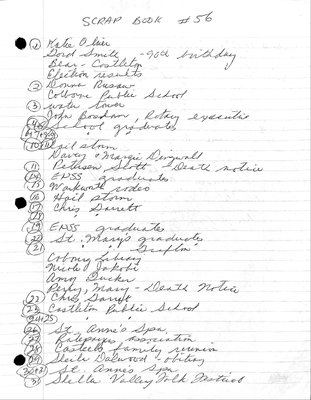 SCRAP BOOK #56
① Katie Olier
Gord Smith - 90th birthday
Bear - Castleton
Election results
② Donna Rusaw
Colborne Public School
③ water tower
John Boughen, Rotary executive
School graduates
Hail storm
Davey & Margie
11 Peterson, Scott - Death notice
14 ENSS graduates
15 Warkworth rodeo
16 Hail storm
17 Chris Garrett
18 "
19 ENSS graduates
20 St. Mary's graduates
21 " " Grafton
Cobourg Library
Nicole Jakobi
Amy Ducker
Perry, Mary - Death Notice
22 Chris Garrett
23 Castleton Public School
24+25 " "
26 St. Anne's Spa
27 Ratepayers Association
28 Casteels family reunion
29 Sheila Dalwood - obituary
St. Anne's Spa
Shelter Valley Folk Festival